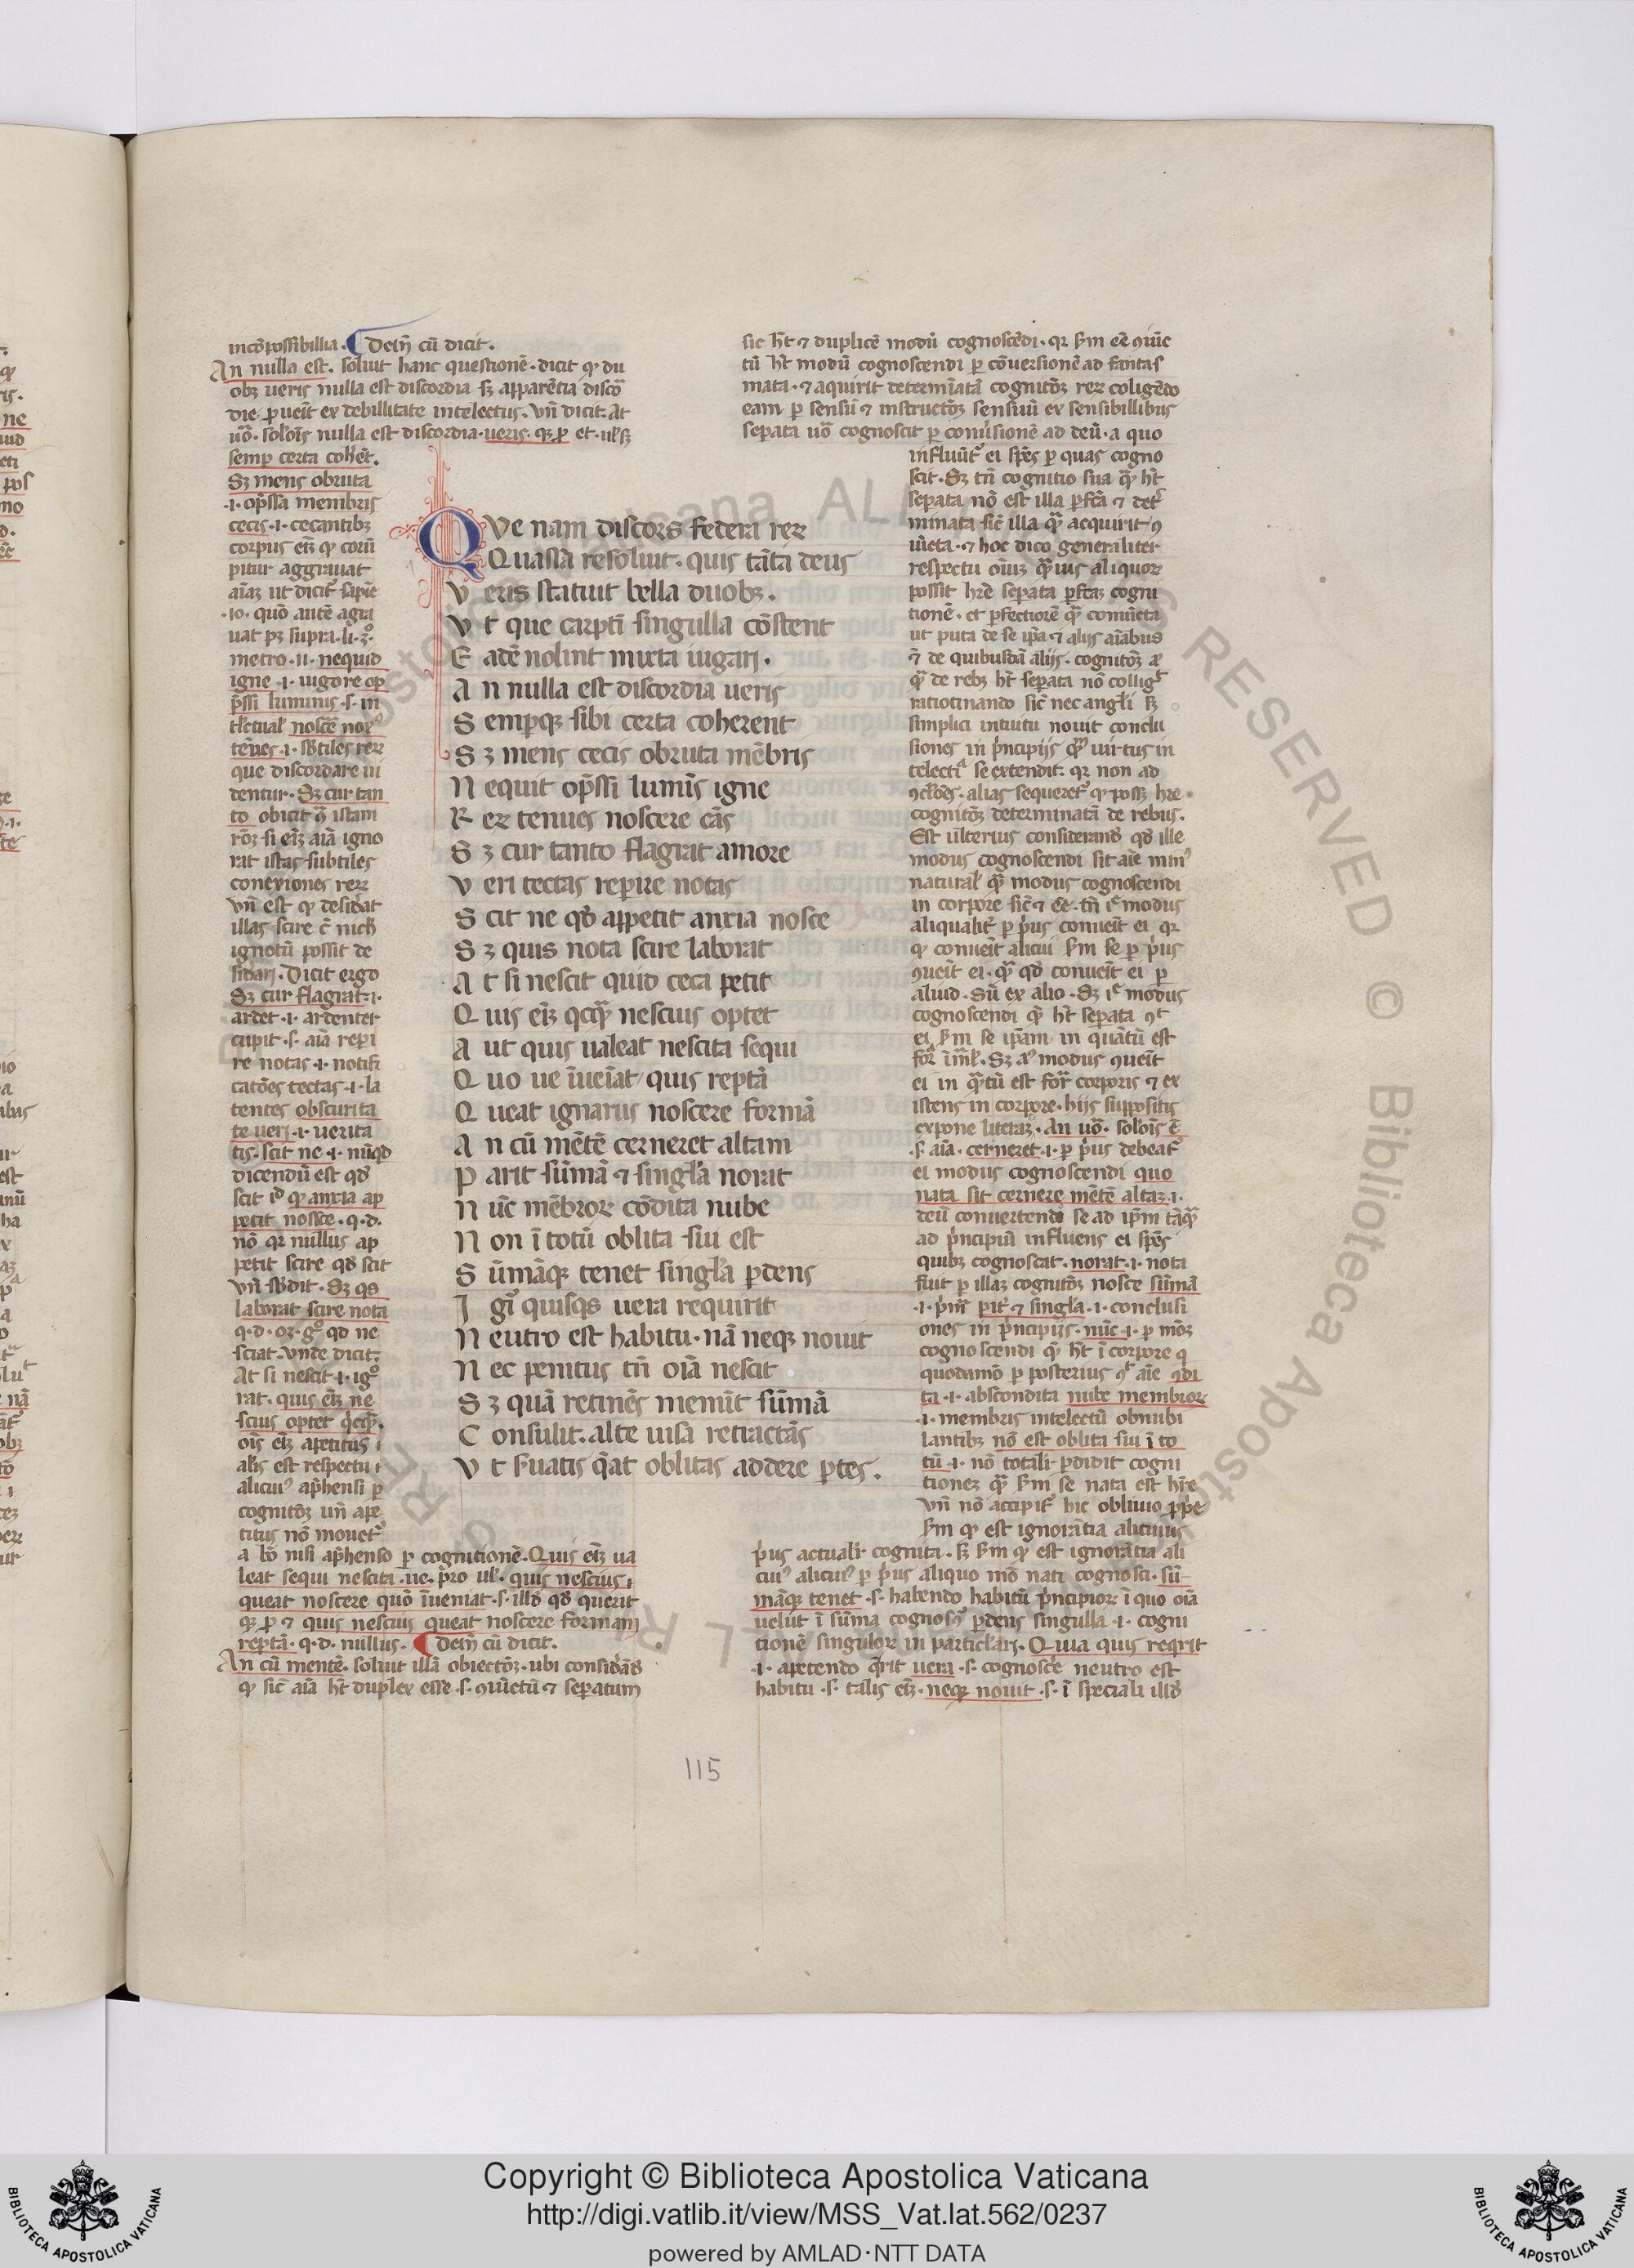 incōpossibilia. Deīn cū dicit.
An nulla est. soluit hanc questionē. dicit ꝙ du
obꝫ ueris nulla est discordia sꝫ apparētia discō
die ꝓueīt ex debilitate intelectus. vn̄ dicit. At
uō. sol'ois nulla est discordia. ueris. qꝫ ꝓ et.
semꝑ certa coħet.
Sꝫ mens obruta
.i. op̄ssa membris
cecis .i. cecantibꝫ
corpus eīꝫ ꝙ corū
pitur aggrauat
aīaꝫ ut dicit' sapiē
.io. quō autē agra
uat pꝫ supra. li. 3°.
metro .ii. nequid
igne .i. uigore op
p̄ssi luminis .s. in
tl'ectual' noscē
tēues .i. sbtiles reꝝ
que discordare ui
dentur. Sꝫ cur tan
to obicit istam
rōꝫ si eīꝫ aīa igno
rat istas subtiles
conexiones reꝝ
vn̄ est ꝙ desiđat
illas scire c̄ nich
ignotū possit de
siđari. Dicit ergo
Sꝫ cur flagrat .i.
ardet .i. ardenter
cupit .s. aīa reꝑi
re notas .i. notifi
catōes tectas .i. la
tentes obscurita
te ueri .i. uerita
tis. scit ne .i. nūqd
dicendū est qđ
scit iđ ꝙ anxia ap
petit nosce. q.d.
nō qr nullus ap
petit scire qđ scit
vn̄ sb̄dit. Sꝫ qs
laborat scire nota
q.d. qđ ne
sciat. vnde dicit.
At si nescit .i. ig°
rat. quis eīꝫ ne
scius optet qcqͣ.
oīs eīꝫ apetitus
alis est respectu
alicui' ap̄hensi ꝑ
cognitōꝫ un̄ ape
titus nō mouet'
a bō nisi ap̄henso ꝑ cognitionē. Quis eīꝫ ua
leat sequi nescita .ue. pro ul'. quis nescius
queat noscere quō īueniat .s. illđ qđ querit
qꝫ ꝓ ⁊ quis nescius queat noscere formam
reptā. q.d. nullus. Deīn cū dicit.
An cū mentē. soluit illā obiectōꝫ. ubi consiđāđ
ꝙ sic aīa ħt duplex esse .s. ꝯiūctū ⁊ separatum
QVe nam discors federa reꝝ
Quassā resoluit. quis tāta deus
V eris statuit bella duobꝫ.
V t que carptī singulla cōstent
E adē nolint mixta iugari.
A n nulla est discordia ueris
S emperqꝫ sibi certa coherent
S ꝫ mens cecis obruta mēbris
N equit op̄ssi lumīs igne
R eꝝ tenues noscere cās
S ꝫ cur tanto flagrat amore
V eri tectas reperire notas
S cit ne qđ appetit anxia nosce
S ꝫ quis nota scire laborat
A t si nescit quid ceca petit
Q uis eīꝫ qcqͣ nescius optet
A ut quis ualeat nescita sequi
Q uo ue īueīat quis reptā
Q ueat ignarus noscere formā
A n cū mētē cerneret altam
P arit sūmā ⁊ singl'a norat
N ūc mēbroꝝ cōdita nube
N on ī totū oblita sui est
S ūmāqꝫ tenet singl'a ꝑdens
I gi' quisqs uera requirit
N eutro est habitu. nā neqꝫ nouit
N ec penitus tn̄ oīa nescit
S ꝫ quā retinēs memīt sūmā
C onsulit. alte uisa retractās
V t s̄uatis q̄at oblitas addere ꝑtes.
sic ħt ⁊ duplicē modū cognoscēdi. qr s̄m eē ꝯiūc
tū ħt modū cognoscendi ꝑ cōuersionē ad fantas
mata. ⁊ aquirit determīatā cognitōꝫ reꝝ coligēdo
eam ꝑ sensū ⁊ instructōꝫ sensuū ex sensibillibus
seperata uō cognoscit ꝑ conuersionē ad deū. a quo
influūt' ei sp̄es ꝑ quas cogno
scit. Sꝫ tn̄ cognitio sua qͣ ħt
seꝑata nō est illa ꝑfc̄a ⁊ det'
minata sic illa qͣ acquirit ꝯ
iūcta. ⁊ hoc dico generaliter
respectu oīuꝫ qͣuis aliquoꝝ
possit hr̄e seꝑata ꝑfc̄aꝫ cogni
tionē. et ꝑfectiorē qͣ coniūcta
ut puta de se ip̄a ⁊ alijs aīabus
⁊ de quibusdā alijs. cognitōꝫ
qͣ de rebꝫ ħt seꝑata nō collig'
ratiocinando sic nec angl'i sꝫ
simplici intuitu nouit conclu
siones in p'ncipijs virtus in
telectiͣ se extendit. qr non ad
ꝯcl'oēs. alias sequeret' ꝙ possꝫ hr̄e
cognitōꝫ determinatā de rebus.
Est ulterius considerand qđ ille
modus cognoscendi sit aīe min'
natural' qͣ modus cognoscendi
in corpore sic ⁊ ee. tn̄ modus
aliqualit' ꝑ p'us conueīt ei qr
ꝙ conueīt alicui s̄m se ꝑ p'us
ꝯueīt ei. qͣ qđ conueīt ei ꝑ
aliud. Sū ex alio. Sꝫ modus
cognoscendi qͣ ħt seꝑata
ei s̄m se ip̄am in quātū est
Sꝫ modus ꝯueīt
ei in qͣtū est corporis ⁊ ex
istens in corpore. hijs suppositis
expone litteraꝫ. An uō. sol'ois ē
.s. aīa. cerneret .i. ꝑ p'us debeat'
ei modus cognoscendi quo
nata sit cernere mētē altaꝫ .i.
deū conuertendo se ad ip̄m tāqͣ
ad p'ncipiū influens ei sp̄es
quibꝫ cognoscat. norat .i. nota
fiūt ꝑ illaꝫ cognitōꝫ nosce sūmā
⁊ singl'a .i. conclusi
ones in p'ncipijs. nūc .i. ꝑ mōꝫ
cognoscendi qͣ ħt ī corpore q
quodamō ꝑ posterius aīe ꝯdi
ta .i. abscondita nube membroꝝ
.i. membris intelectū obnubi
lantibꝫ nō est oblita sui ī to
tū .i. nō totalit' ꝑdidit cogni
tioneꝫ qͣ s̄m se nata est hr̄e
vn̄ nō accipit' hic obliuio ꝓpe
s̄m ꝙ est ignorātia alicuius
p'us actualit' cognita. sꝫ s̄m ꝙ est ignorātia ali
cui' alicui' ꝑ p'us aliquo mō nati cognosci. sū
māqꝫ tenet .s. habendo habitū p'ncipioꝝ ī quo oīa
uelut ī sūma cognos' ꝑdens singulla .i. cogni
tionē singuloꝝ in particl'ari. Quia quis reqrit
.i. apetendo q̄rit uera .s. cognosc'e neutro est
habitu .s. talis eīꝫ. neqꝫ nouit .s. ī speciali illđ
115
Copyright © Biblioteca Apostolica Vaticana
http://digi.vatlib.it/view/MSS_Vat.lat.562/0237
powered by AMLAD·NTT DATA
BIBLIOTECA APOSTOLICA VATICANA
BIBLIOTECA APOSTOLICA VATICANA